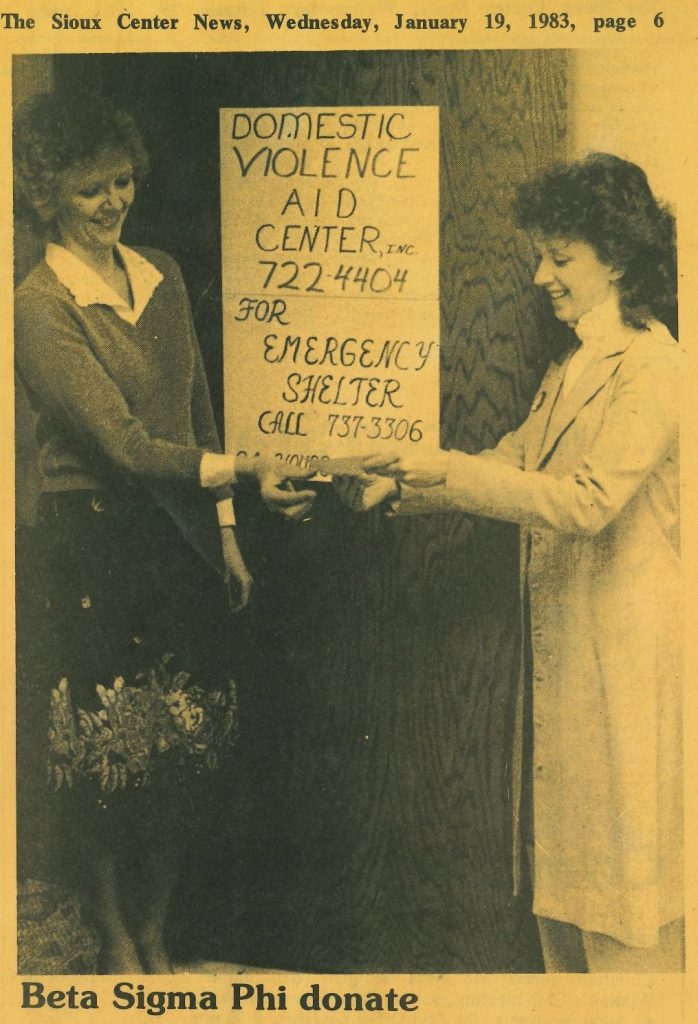 The Sioux Center News, Wednesday, January 19, 1983, page 6
DOMESTIC
VIOLENCE
AID
CENTER, INC.
722-4404
FOR
EMERGENCY
SHELTER
CALL 737-3306
24 HOURS
Beta Sigma Phi donate